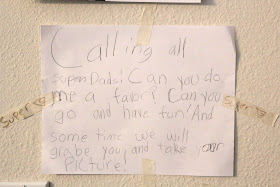 Calling all
Super Dads! Can you do
me a favor? Can you
go and have fun! And
some time we will
grabe you and take your
Picture!
Super
Super